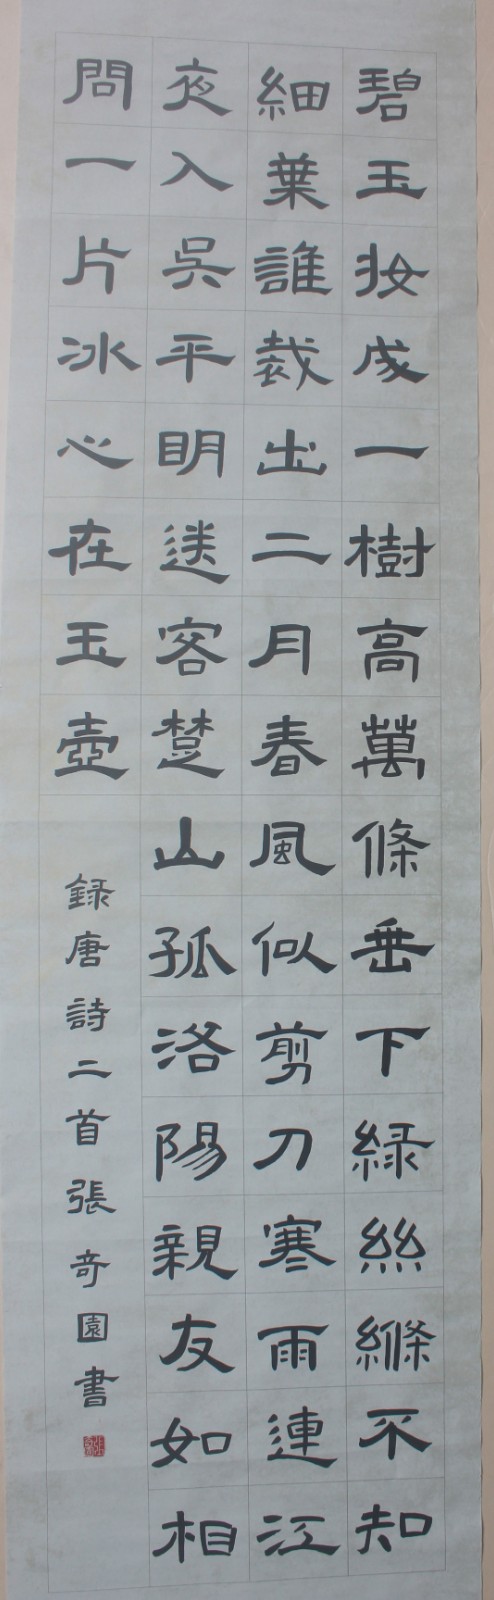 碧玉妆成一樹高萬條垂下緑絲縧不知
細葉誰裁出二月春風似剪刀寒雨連江
夜入吳平明送客楚山孤洛陽親友如相
問一片冰心在玉壺
録唐詩二首張奇園書